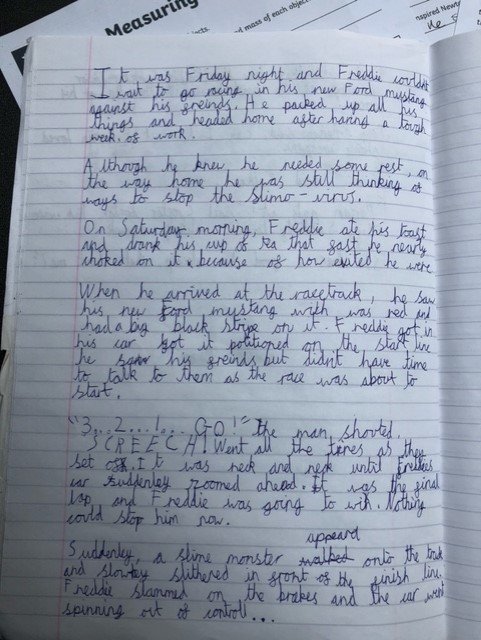 Measuring
d mass of each object.
nspired Newt
jects.
It was Friday night and Freddie couldnt
wait to go racing in his new Food mustang
against his greinds. He packed up all his
things and headed home after having a tough
week of work.
Although he knew he needed some rest, on
the way home he was still thinking of
ways to stop the slimo-virus.
On Saturday morning, Freddie ate his toast
and drank his cup of tea that fast he nearly
choked on it because of how exited he were.
When he arrived at the racetrack, he saw
his new Ford mustang witch was red and
had a big black stripe on it. Freddie got in
his car got it potitioned on the start line
he saw his greinds but didnt have time
to talk to them as the race was about to
start.
"3...2...1....GO!" the man shouted.
SCREECH! Went all the tyres as they
set off. It was neck and neck until Freddies
car suddenley zoomed ahead. It was the final
lap and Freddie was going to win. Nothing
could stop him now.
appeard
Suddenley, a slime monster walked onto the track
and slowley slithered in front of the finish line.
Freddie slammed on the brakes and the car went
spinning out of controll...